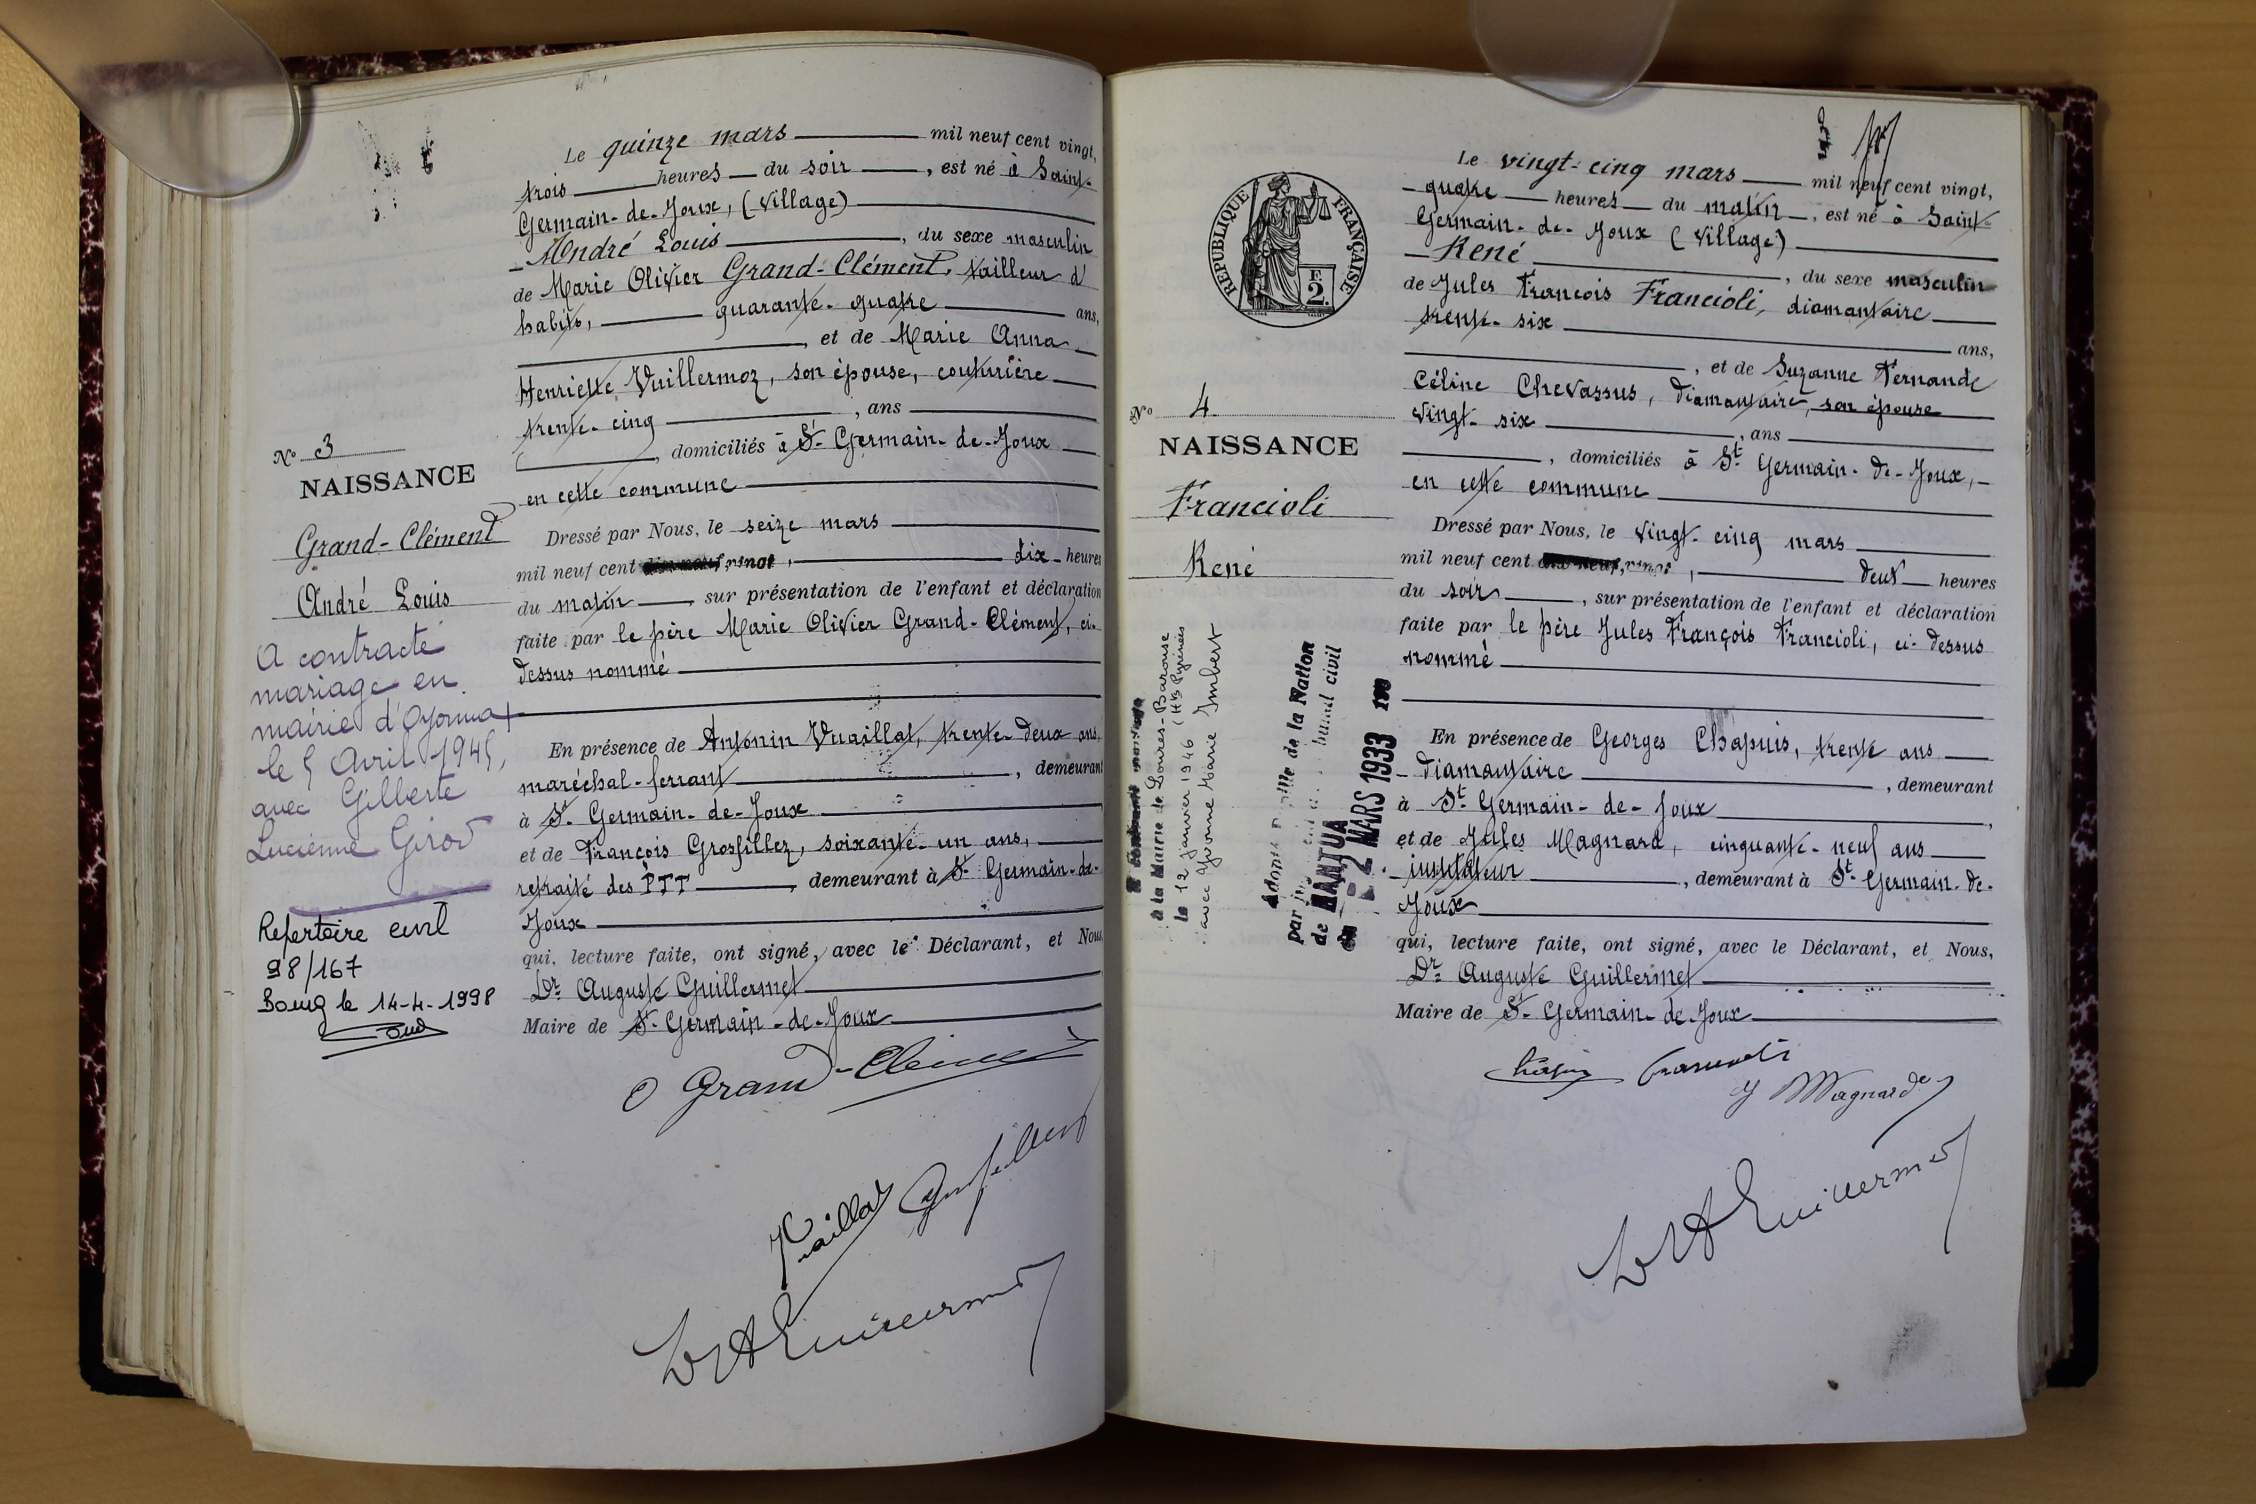 Le quinze mars mil neuf cent vingt,
trois heures du soir, est né à Saint-
Germain-de-Joux, (Village)
André Louis, du sexe masculin
de Marie Olivier Grand-Clément, tailleur d'
habits, quarante-quatre ans,
, et de Marie Anna
Henriette Vuillermoz, son épouse, couturière
trente-cinq, ans
, domiciliés à St-Germain-de-Joux
en cette commune
Dressé par Nous, le seize mars
mil neuf cent vingt, dix heures
du matin, sur présentation de l'enfant et déclaration
faite par le père Marie Olivier Grand-Clément, ci-
dessus nommé
En présence de Antonin Vuaillat, trente-deux ans,
maréchal-ferrant, demeurant
à St-Germain-de-Joux
et de François Grosfillez, soixante-un ans,
retraité des PTT, demeurant à St-Germain-de-
Joux
qui, lecture faite, ont signé, avec le Déclarant, et Nous
Dr Auguste Guillermet
Maire de St-Germain-de-Joux
O Grand-Clément
Vuaillat Grosfillez
Dr A Guillermet
No 3
NAISSANCE
Grand-Clément
André Louis
A contracté
mariage en
mairie d'Oyonnax
le 5 Avril 1945,
avec Gilberte
Lucienne Girod
Repertoire civil
98/167
Bourg le 14-4-1998
RÉPUBLIQUE FRANÇAISE
2 F.
No 4
NAISSANCE
Francioli
René
à la Mairie de Loures-Barousse
(Htes Pyrénées
le 12 Janvier 1946
avec Yvonne Marie Imbert
Adopté pupille de la Nation
par jugement du tribunal civil
de NANTUA
du - 2 MARS 1933
Le vingt-cinq mars mil neuf cent vingt,
quatre heures du matin, est né à Saint-
Germain-de-Joux (Village)
René, du sexe masculin
de Jules François Francioli, diamantaire
trente-six ans,
, et de Suzanne Fernande
Céline Chevassus, diamantaire, son épouse
vingt-six, ans
, domiciliés à St-Germain-de-Joux,
en cette commune
Dressé par Nous, le vingt-cinq mars
mil neuf cent vingt, deux heures
du soir, sur présentation de l'enfant et déclaration
faite par le père Jules François Francioli, ci-dessus
nommé
En présence de Georges Chapuis, trente ans
diamantaire, demeurant
à St-Germain-de-Joux,
et de Jules Magnard, cinquante-neuf ans
instituteur, demeurant à St-Germain-de-
Joux
qui, lecture faite, ont signé, avec le Déclarant, et Nous,
Dr Auguste Guillermet
Maire de St-Germain-de-Joux
Chapuis Francioli
J Magnard
Dr A Guillermet